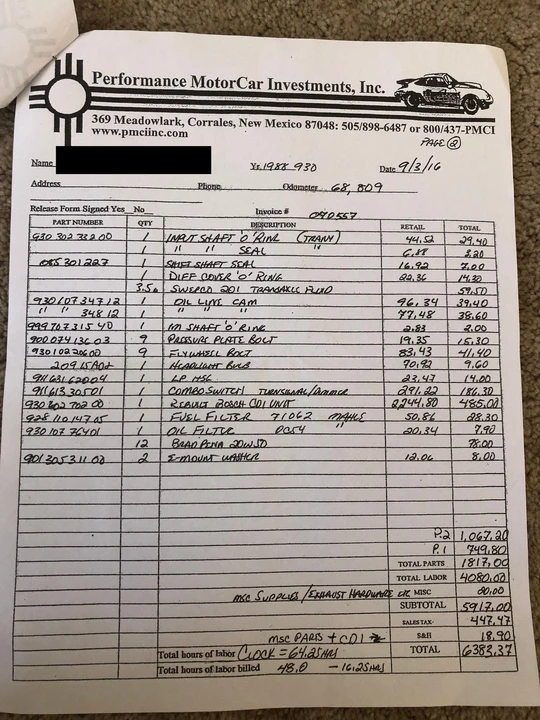 Performance MotorCar Investments, Inc.
369 Meadowlark, Corrales, New Mexico 87048: 505/898-6487 or 800/437-PMCI
www.pmciinc.com
PAGE 2
Name Yr. 1988 930 Date 9/3/16
Address Phone Odometer 68,809
Release Form Signed Yes__No__ Invoice #
PART NUMBER QTY DESCRIPTION RETAIL TOTAL
930 302 332 00 1 INPUT SHAFT 'O' RING (TRANY) 44.52 29.40
1 " " SEAL " 6.88 3.20
085 301 227 1 SHIFT SHAFT SEAL 16.92 7.00
1 DIFF COVER 'O' RING 22.36 14.30
3.5 SWEPCO 201 TRANSAXLE FLUID 59.50
930 107 347 12 1 OIL LINE CAM 96.34 39.40
" " 348 12 1 " " " 77.48 38.60
999 707 315 40 1 SHAFT 'O' RING 2.83 2.00
900 074 136 03 9 PRESSURE PLATE BOLT 19.35 15.30
930 102 206 00 9 FLYWHEEL BOLT 83.43 41.40
1 HEADLIGHT BULB 70.92 9.60
911 631 620 04 1 LP HSG 23.47 14.00
911 613 305 01 1 COMBO SWITCH TURNSIGNAL/DIMMER 291.22 186.30
930 602 702 00 1 REBUILT BOSCH CDI UNIT 2244.80 485.00
928 110 147 05 1 FUEL FILTER 71062 MAHLE 50.86 28.30
930 107 764 01 1 OIL FILTER OC54 " 20.34 7.90
12 BRAD PENN 20W50 78.00
901 305 311 00 2 WASHER 12.06 8.00
P.2 1,067.20
P.1 749.80
TOTAL PARTS 1817.00
TOTAL LABOR 4080.00
MSC SUPPLIES/EXHAUST HARDWARE MISC 20.00
SUBTOTAL 5917.00
SALES TAX 447.47
MSC PARTS + CDI S&H 18.90
Total hours of labor CLOCK = 64.25 HRS TOTAL 6383.37
Total hours of labor billed 48.0 - 16.25 HRS